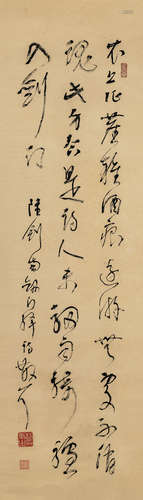 衣上征塵雜酒痕遠游無處不消
魂此身合是詩人未細雨騎驢
入劍門 陸劍南劍門詩散耳